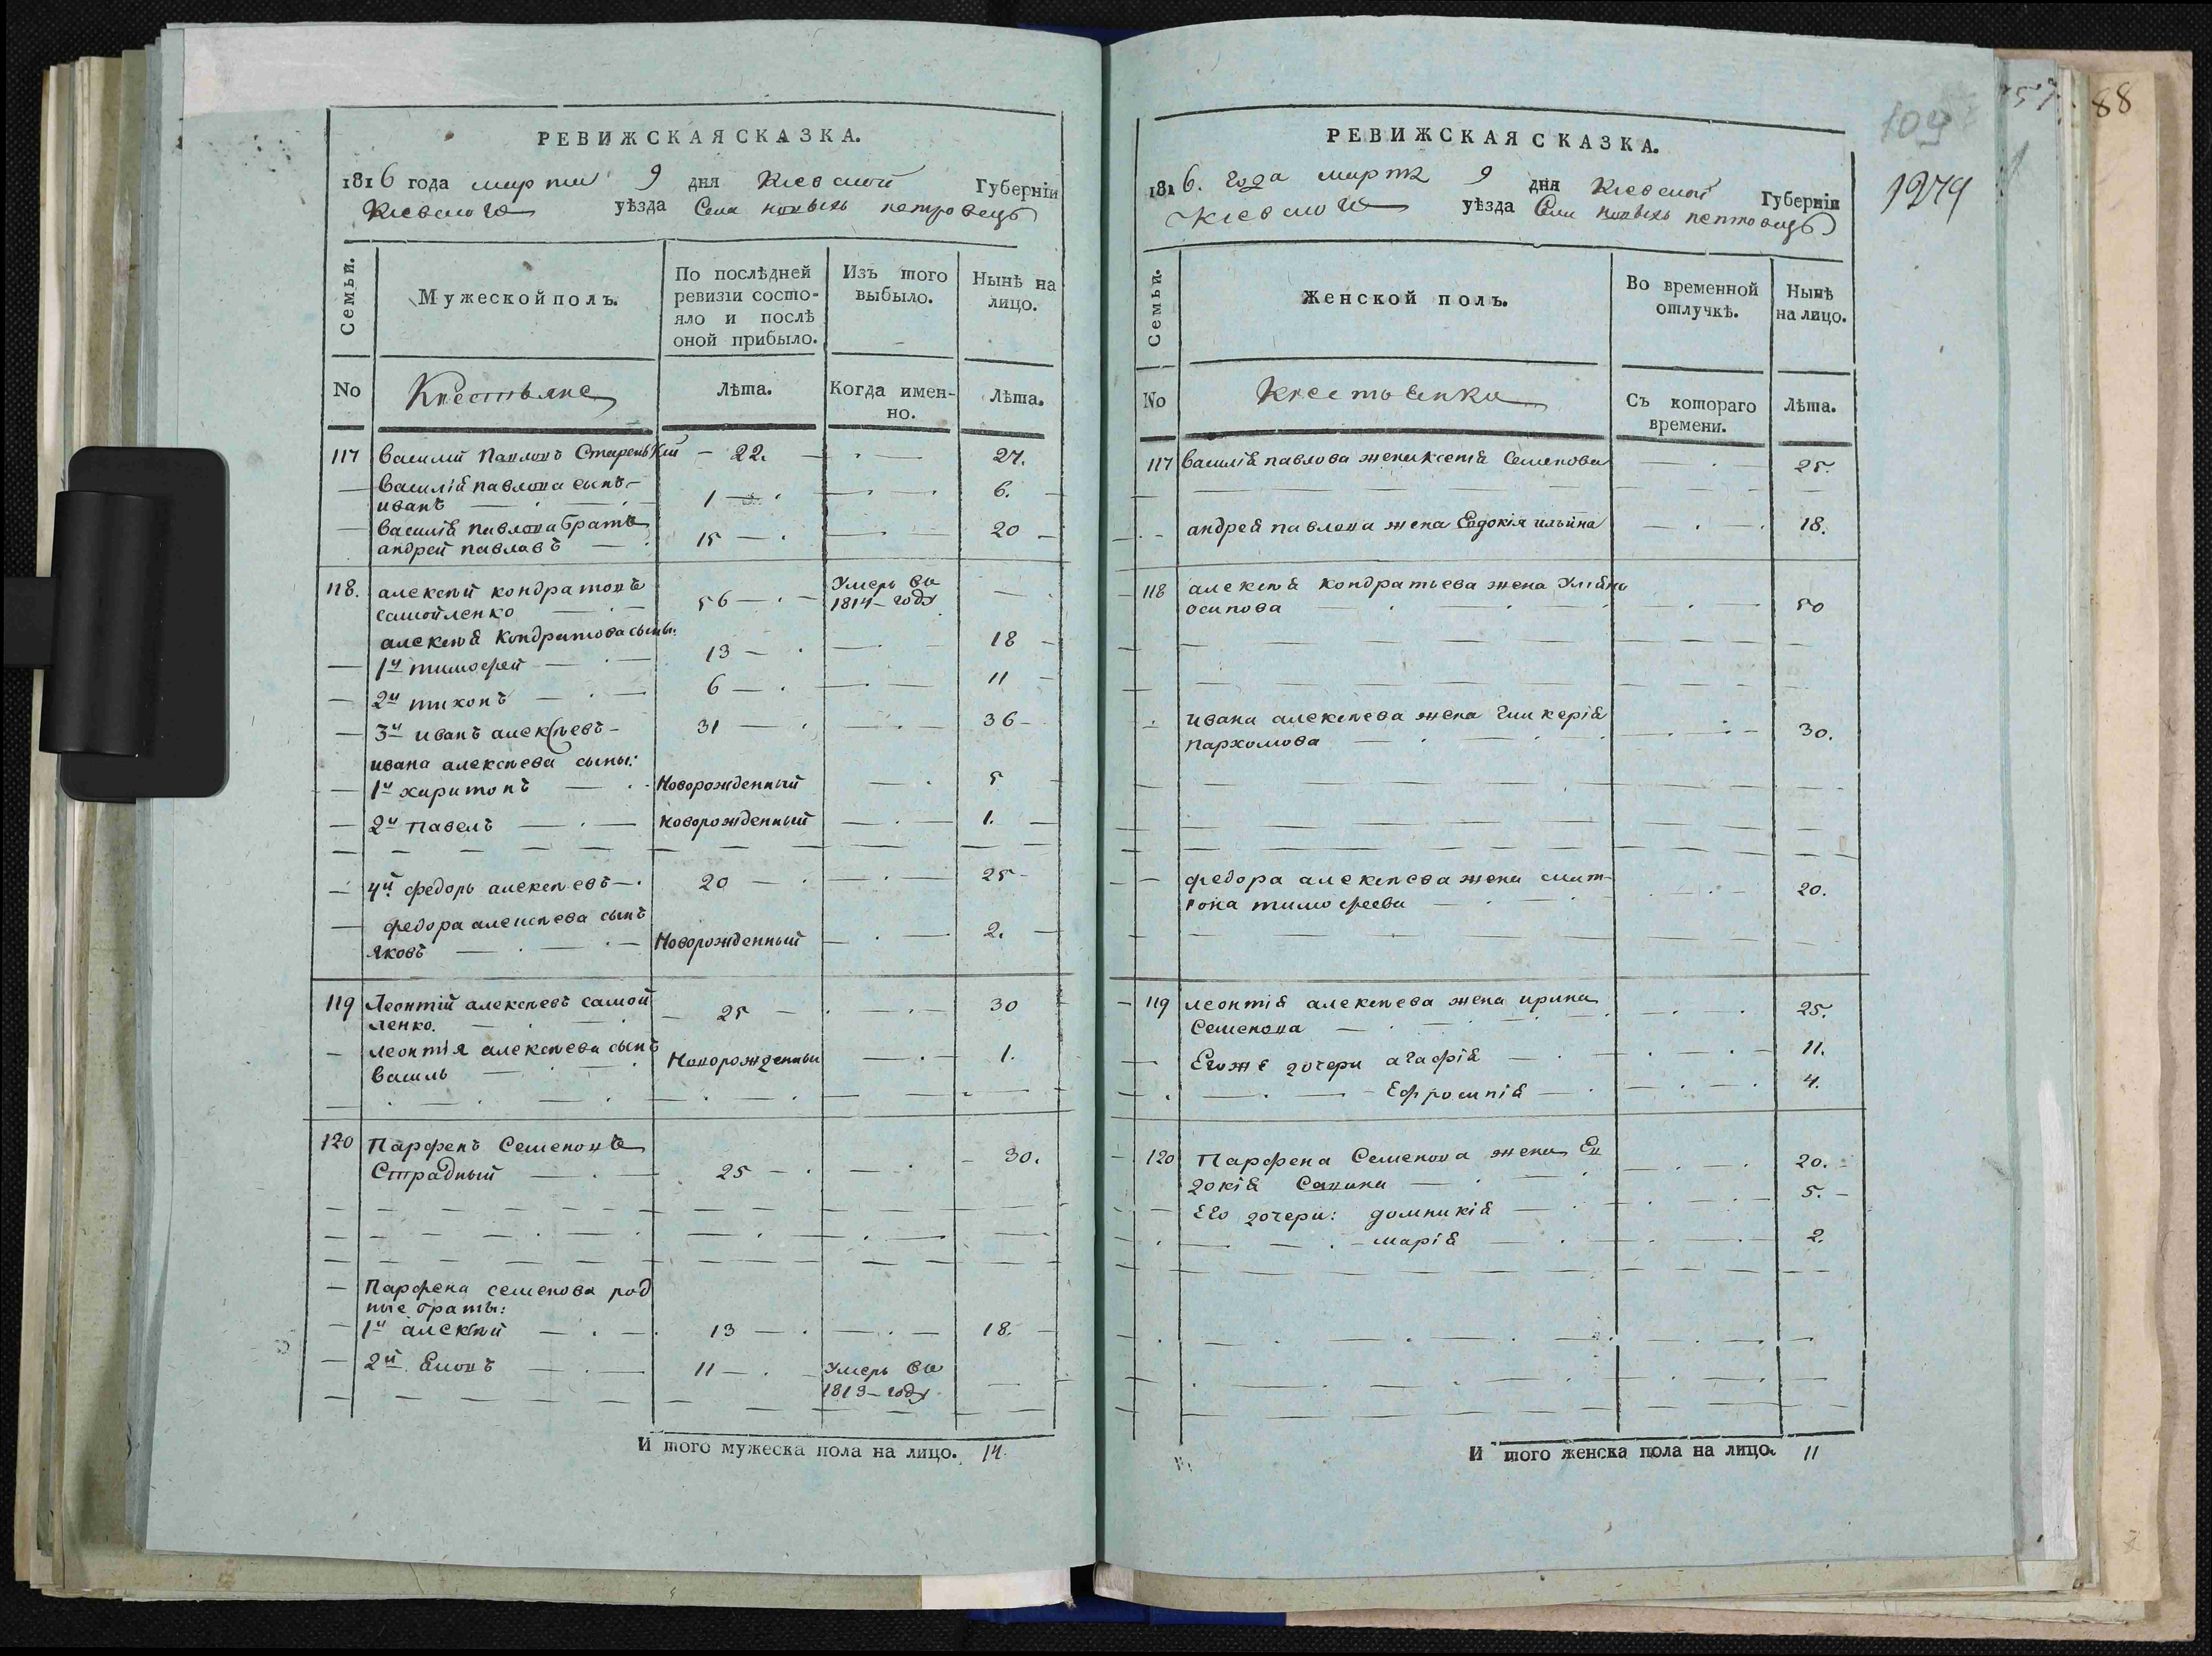 РЕВИЖСКАЯ СКАЗКА.
1816 года марта 9 дня Кіевской Губерніи
Кіевского уѣзда Села новыхъ петровецъ
Семьи.
Мужеской полъ.
По послѣдней ревизіи состояло и послѣ оной прибыло.
Изъ того выбыло.
Нынѣ на лицо.
No
Крестьяне
Лѣта.
Когда именно.
Лѣта.
117 василій Павловъ Старенькій 22. 27.
василія павлова сынъ
иванъ 1 6.
василія павлова братъ
андрей павловъ 15 20
118. алексѣй кондратовъ Умеръ въ
самойленко 56 1814 году
алексѣя Кондратова сыны:
1й тимофей 13 18
2й тихонъ 6 11
3й иванъ алексѣевъ 31 36
ивана алексѣева сыны:
1й харитонъ Новорожденный 5
2й павелъ новорожденный 1.
4й федоръ алексѣевъ 20 25
федора алексѣева сынъ
яковъ Новорожденный 2.
119 Леонтій алексѣевъ самой
ленко. 25 30
леонтія алексѣева сынъ
василь Новорожденный 1.
120 Парфенъ Семеновъ
Страдный 25 30.
Парфена семенова род
ные браты:
1й алексѣй 13 18.
2й 11 Умеръ въ
1813 году
И того мужеска пола на лицо. 14.
РЕВИЖСКАЯ СКАЗКА.
1816. года марта 9 дня Кіевской Губерніи
Кіевского уѣзда Села новыхъ петровецъ
Семьи.
Женской полъ.
Во временной отлучкѣ.
Нынѣ на лицо.
No
Крестьянки
Съ котораго времени.
Лѣта.
117 василія павлова жена ксенія Семенова 25.
андрея павлова жена Евдокія ильина 18.
118 алексѣя кондратьева жена Уліяна
осипова 50
ивана алексѣева жена гликерія
пархомова 30.
федора алексѣева жена
тимофеева 20.
119 леонтія алексѣева жена ирина
Семенова 25.
Егожъ дочери агафія 11.
Ефросинія 4.
120 Парфена Семенова жена Ев
докія Савина 20.
Его дочери: домникія 5.
марія 2.
И того женска пола на лицо. 11
109
1274
57
88